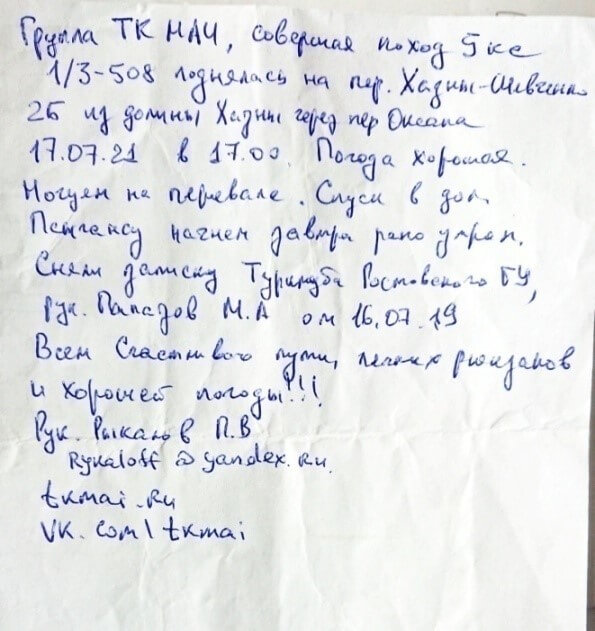 Группа ТК МАИ, совершая поход 5 кс
1/3-508 поднялась на пер. Хазны-Шевченко
2Б из долины Хазны через пер Океана
17.07.21 в 17.00. Погода хорошая.
Ночуем на перевале. Спуск в дол.
начнем завтра рано утром.
Сняли записку Турклуба Ростовского ГУ,
рук. М.А от 16.07.19
Всем Счастливого пути, легких рюкзаков
и хорошей погоды!!!
Рук. Рыкалов П.В
Rykaloff@yandex.ru
tkmai.ru
VK.com/tkmai